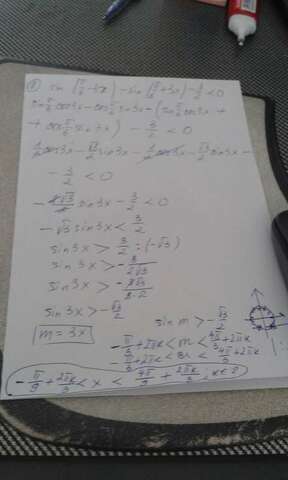 ① sin (π/6 - 3x) - sin (π/6 + 3x) - 3/2 < 0
sin π/6 cos3x - cos π/6 sin3x - (sin π/6 cos3x +
+ cos π/6 sin3x) - 3/2 < 0
1/2 cos3x - √3/2 sin3x - 1/2 cos3x - √3/2 sin3x -
- 3/2 < 0
- 2√3/2 sin3x - 3/2 < 0
- √3 sin3x < 3/2
sin3x > 3/2 : (-√3)
sin3x > - 3/2√3
sin3x > - 3√3/3·2
sin3x > - √3/2
m = 3x
sin m > - √3/2
- π/3 + 2πk < m < 4π/3 + 2πk
- π/3 + 2πk < 3x < 4π/3 + 2πk
- π/9 + 2πk/3 < x < 4π/9 + 2πk/3 ; k ∈ Z